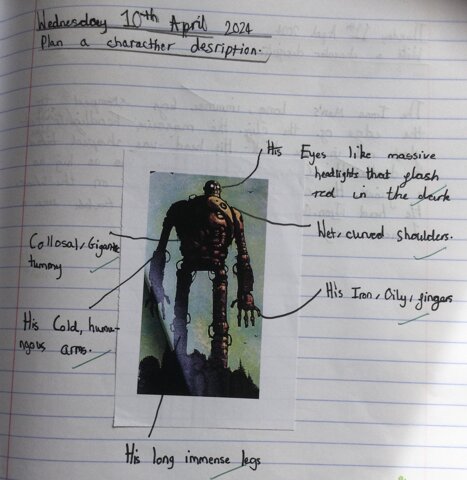 Wednesday 10th April 2024
Plan a characther desription.
His Eyes like massive
headlights that flash
red in the dark
Wet, curved shoulders.
Collosal, Gigante
tummy
His Iron, Oily, fingars
His Cold, humu-
ngous arms.
His long immense legs